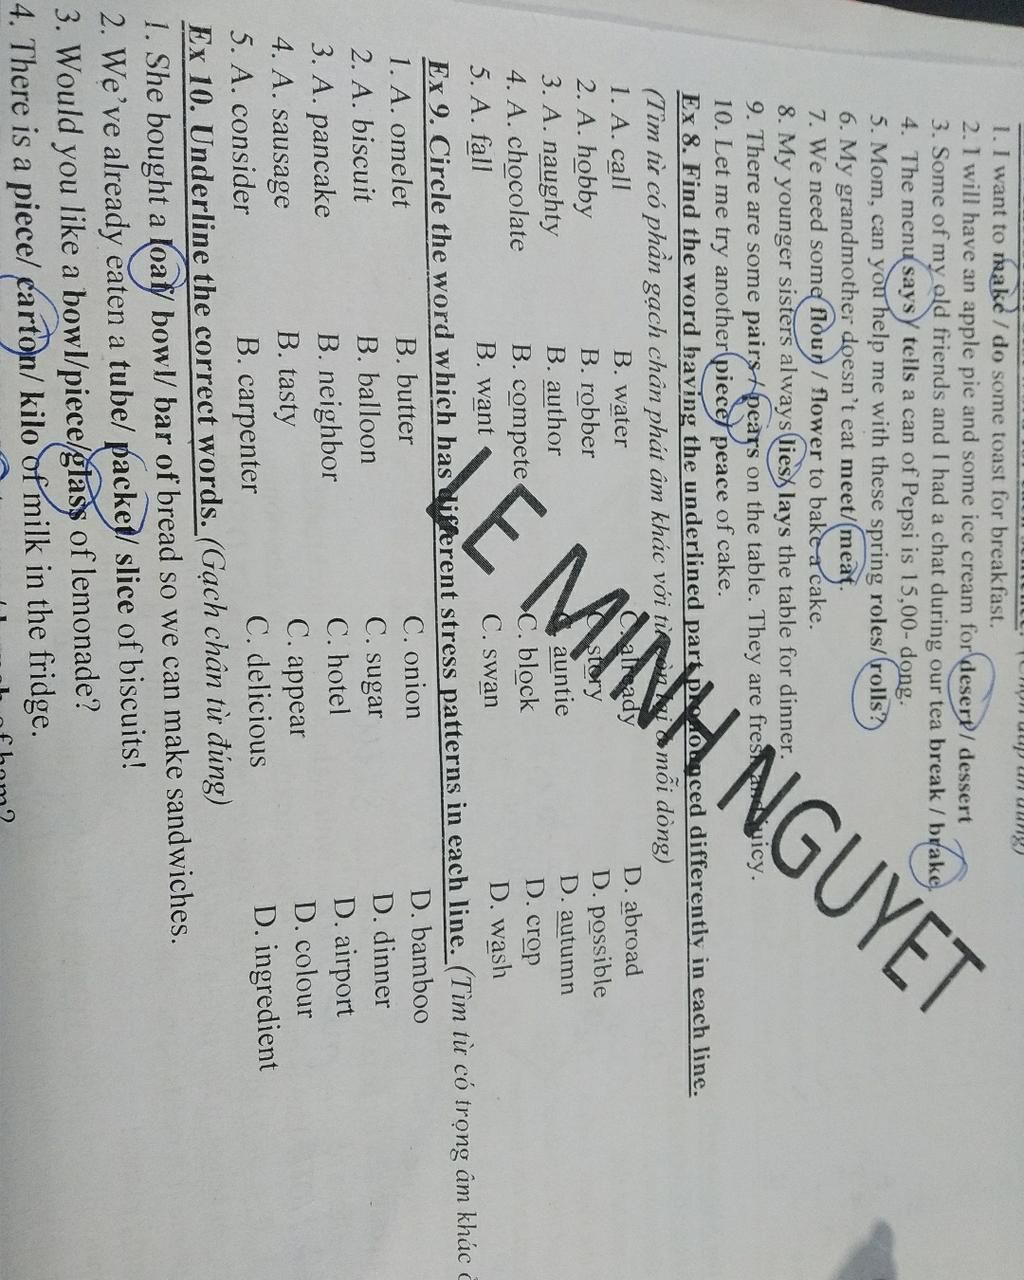 1. I want to make / do some toast for breakfast.
2. I will have an apple pie and some ice cream for desert / dessert
3. Some of my old friends and I had a chat during our tea break / brake.
4. The menu says / tells a can of Pepsi is 15,00- dong.
5. Mom, can you help me with these spring roles/ rolls?
6. My grandmother doesn't eat meet/ meat.
7. We need some flour / flower to bake a cake.
8. My younger sisters always lies/ lays the table for dinner.
9. There are some pairs / pears on the table. They are fresh and juicy.
10. Let me try another piece/ peace of cake.
Ex 8. Find the word having the underlined part pronounced differently in each line.
(Tìm từ có phần gạch chân phát âm khác với mỗi dòng)
1. A. call B. water C. already D. abroad
2. A. hobby B. robber C. story D. possible
3. A. naughty B. author C. auntie D. autumn
4. A. chocolate B. compete C. block D. crop
5. A. fall B. want C. swan D. wash
Ex 9. Circle the word which has different stress patterns in each line. (Tìm từ có trọng âm khác
1. A. omelet B. butter C. onion D. bamboo
2. A. biscuit B. balloon C. sugar D. dinner
3. A. pancake B. neighbor C. hotel D. airport
4. A. sausage B. tasty C. appear D. colour
5. A. consider B. carpenter C. delicious D. ingredient
Ex 10. Underline the correct words. (Gạch chân từ đúng)
1. She bought a loaf/ bowl/ bar of bread so we can make sandwiches.
2. We've already eaten a tube/ packet/ slice of biscuits!
3. Would you like a bowl/piece/glass of lemonade?
4. There is a piece/ carton/ kilo of milk in the fridge.
LE MINH NGUYET